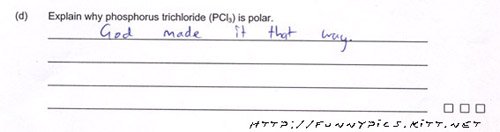 (d) Explain why phosphorus trichloride (PCl₃) is polar.
God made it that way.
HTTP://FUNNYPICS.KITT.NET